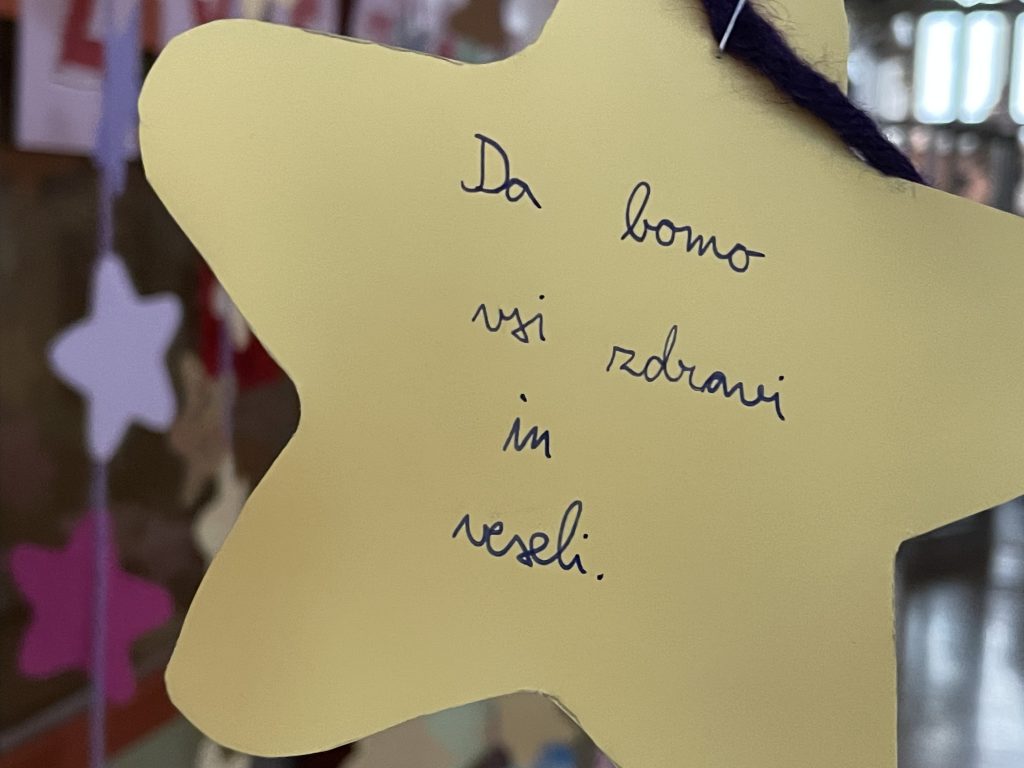 Da bomo
vsi zdravi
in
veseli.